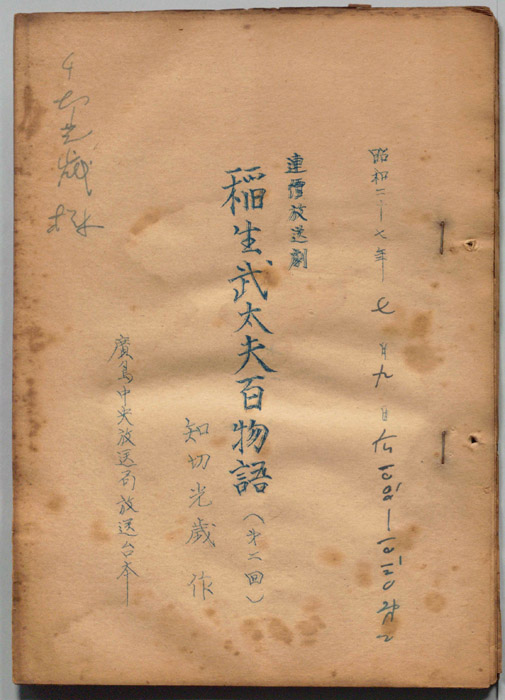 昭和二十七年七月九日
連續放送劇
稲生武太夫百物語(第二回)
知切光歳 作
廣島中央放送局放送台本
知切光歳様